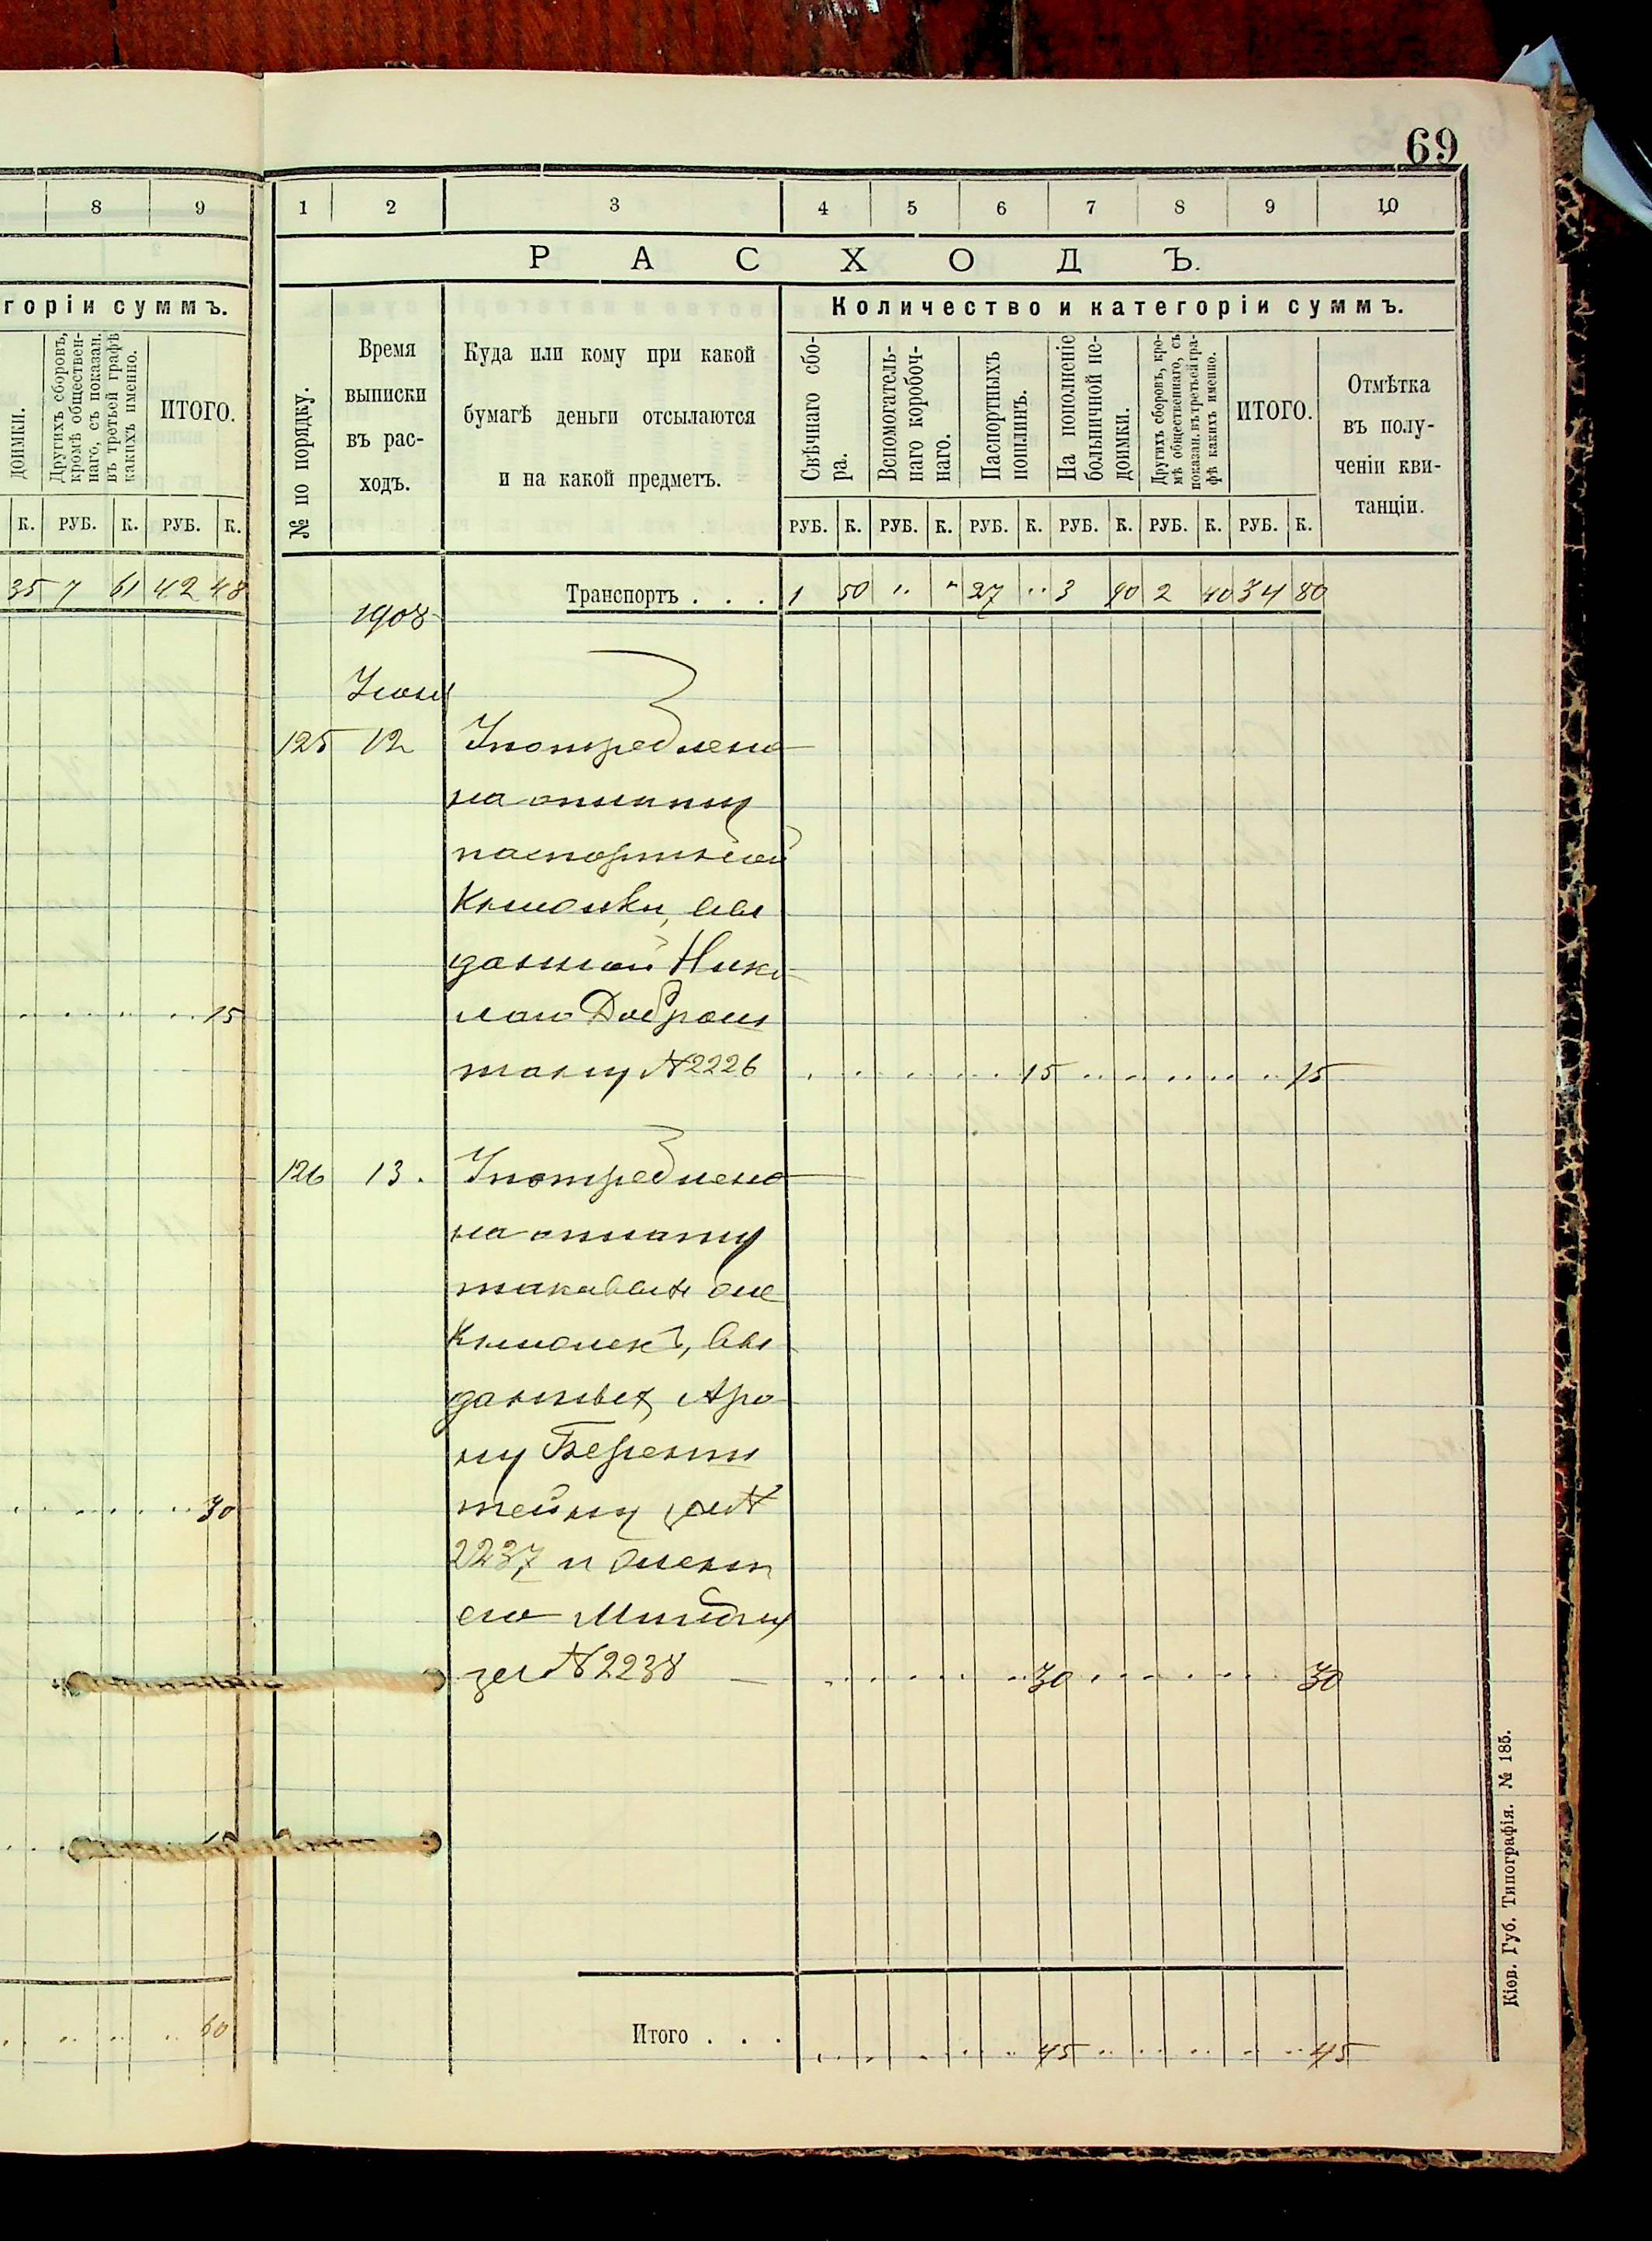 69
8 9
горіи суммъ.
доимки.
Другихъ сборовъ,
кромѣ обществен-
наго, съ показан.
въ третьей графѣ
какихъ именно.
ИТОГО.
К. РУБ. К. РУБ. К.
35 7 61 42 48
15
30
60
1 2 3 4 5 6 7 8 9 10
РАСХОДЪ.
№ по порядку.
Время
выписки
въ рас-
ходъ.
Куда или кому при какой
бумагѣ деньги отсылаются
и на какой предметъ.
Количество и категоріи суммъ.
Свѣчнаго сбо-
ра.
Вспомогатель-
наго коробоч-
наго.
Паспортныхъ
пошлинъ.
На пополненіе
больничной не-
доимки.
Другихъ сборовъ, кро-
мѣ общественнаго, съ
показан. въ третьей гра-
фѣ какихъ именно.
ИТОГО.
Отмѣтка
въ полу-
ченіи кви-
танціи.
РУБ. К. РУБ. К. РУБ. К. РУБ. К. РУБ. К. РУБ. К.
Транспортъ . . . 1 50 " " 27 " 3 90 2 40 34 80
1908
Іюня
125 12 Употреблено
на оплату
паспортной
книжки, вы
данной Нико
лаю
№2226 15 15
126 13. Употреблено
на оплату
таковыхъ же
книжекъ, вы
данныхъ Аро
ну Берен
тейну за №
2237 и
его
за №2238 30 30
Итого . . . 45 45
Кіов. Губ. Типографія. № 185.